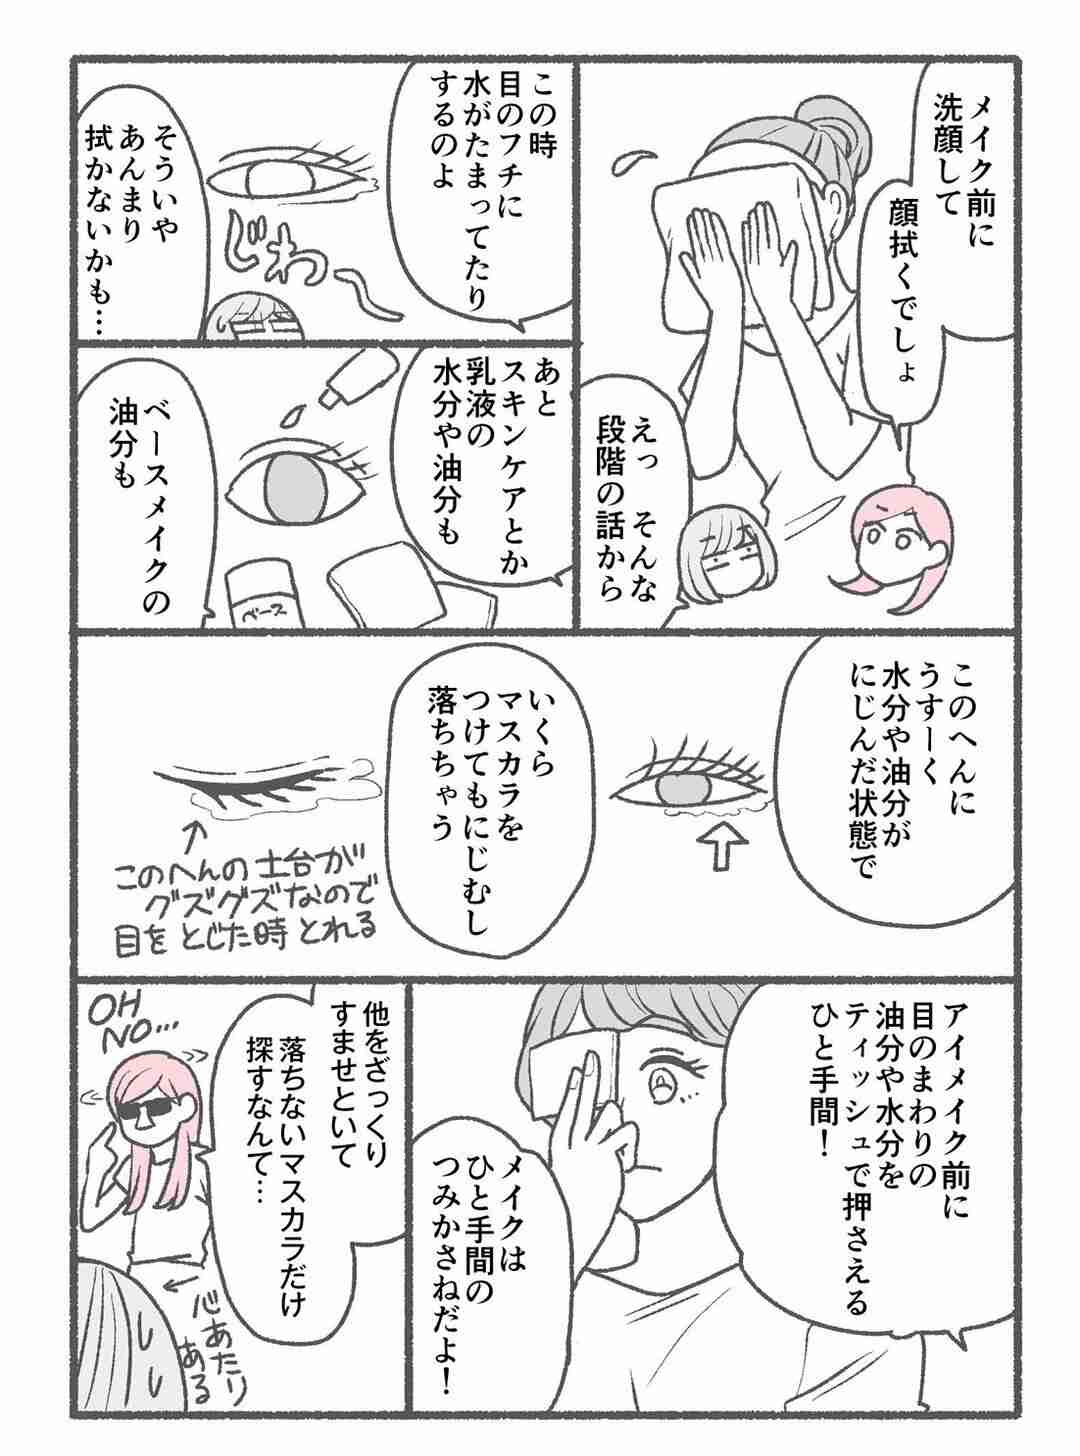 メイク前に
洗顔して
顔拭くでしょ
えっ そんな
段階の話から
この時
目のフチに
水がたまってたり
するのよ
じわ〜
そういや
あんまり
拭かないかも…
あと
スキンケアとか
乳液の
水分や油分も
ベースメイクの
油分も
ベース
このへんに
うすーく
水分や油分が
にじんだ状態で
いくら
マスカラを
つけてもにじむし
落ちちゃう
このへんの土台が
グズグズなので
目をとじた時とれる
アイメイク前に
目のまわりの
油分や水分を
ティッシュで押さえる
ひと手間！
メイクは
ひと手間の
つみかさねだよ！
他をざっくり
すませといて
落ちないマスカラだけ
探すなんて…
OH
NO…
心あたり
ある